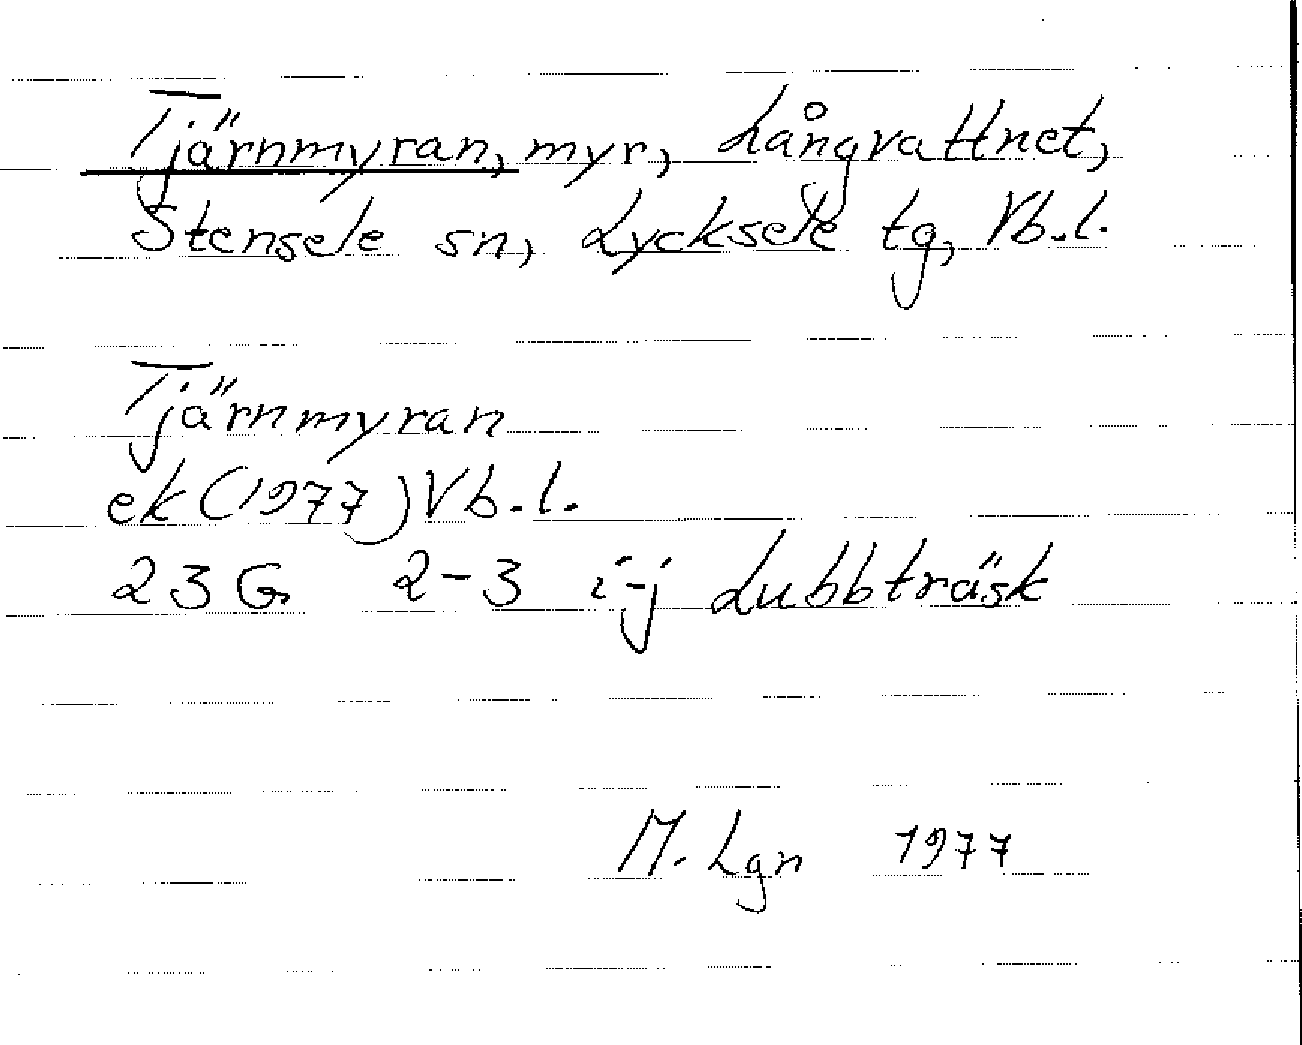 Tjärnmyran, myr, Långvattnet,
Stensele sn, Lycksele tg, Vb.l.
Tjärnmyran
ek (1977) Vb.l.
23 G 2-3 i-j Lubbträsk
M. Lgn 1977